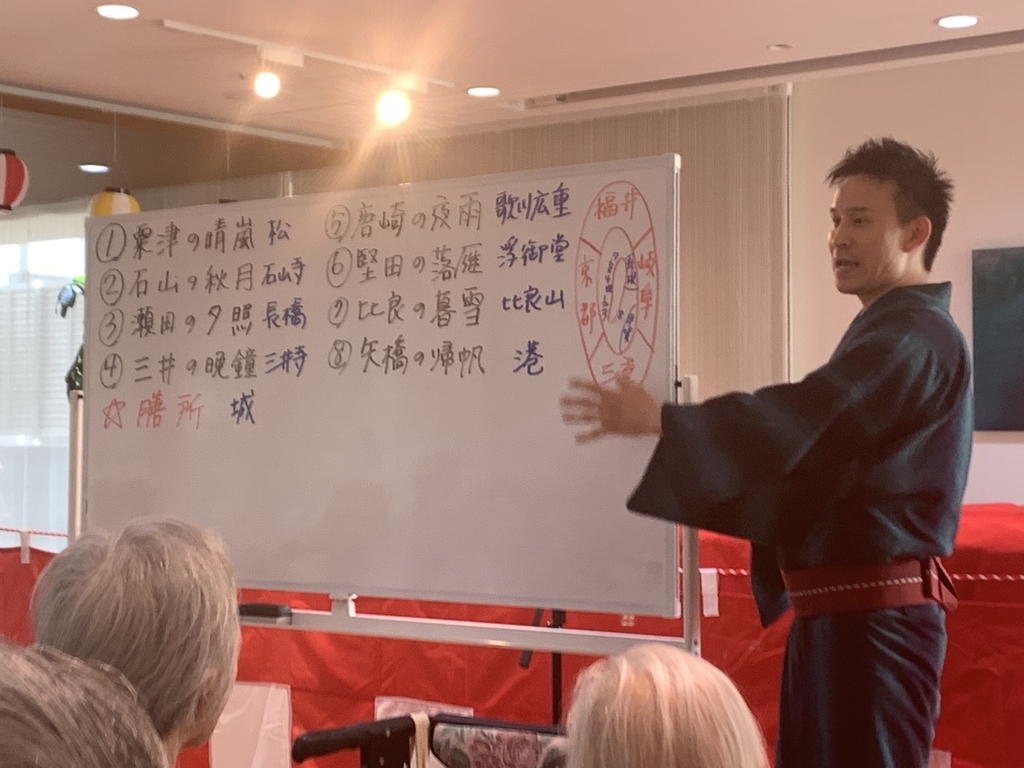 ①粟津の晴嵐 松
②石山の秋月 石山寺
③瀬田の夕照 長橋
④三井の晩鐘 三井寺
☆膳所 城
⑤唐崎の夜雨 歌川広重
⑥堅田の落雁 浮御堂
⑦比良の暮雪 比良山
⑧矢橋の帰帆 港
福井
岐阜
京都
三重